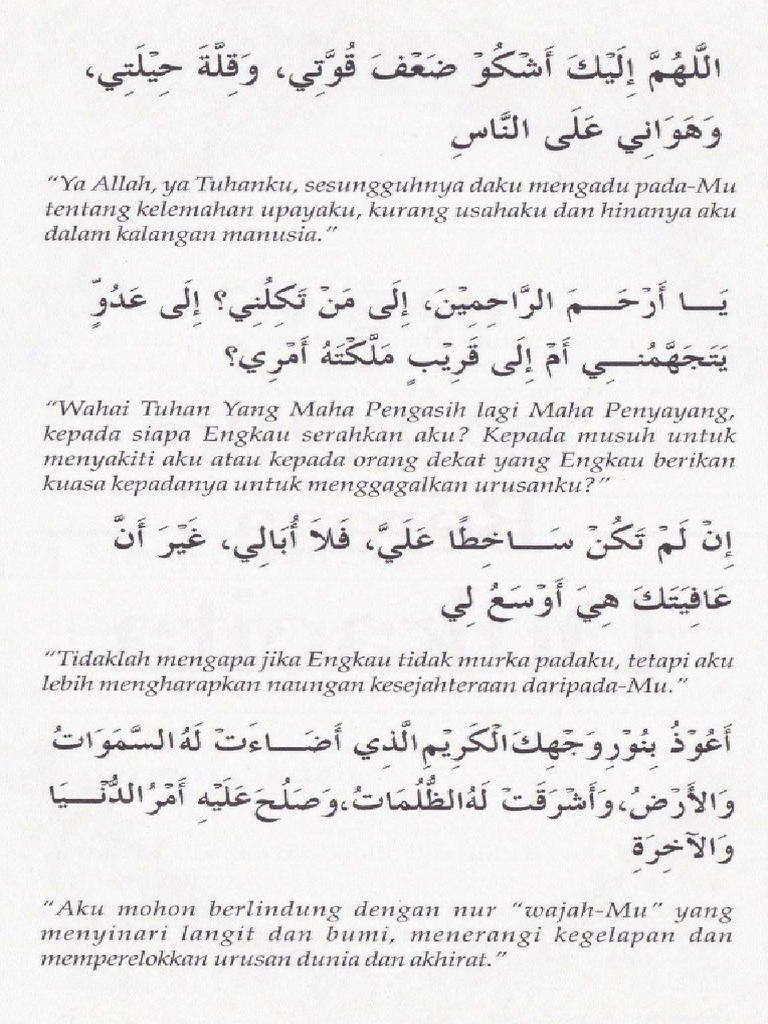 اللَّهُمَّ إِلَيْكَ أَشْكُوْ ضَعْفَ قُوَّتِي، وَقِلَّةَ حِيْلَتِي،
وَهَوَانِي عَلَى النَّاسِ
“Ya Allah, ya Tuhanku, sesungguhnya daku mengadu pada-Mu
tentang kelemahan upayaku, kurang usahaku dan hinanya aku
dalam kalangan manusia.”
يَـــا أَرْحَـــمَ الرَّاحِمِيْنَ، إِلَى مَنْ تَكِلُنِي؟ إِلَى عَدُوٍّ
يَتَجَهَّمُنـــِي أَمْ إِلَى قَرِيْبٍ مَلَّكْتَهُ أَمْرِي؟
“Wahai Tuhan Yang Maha Pengasih lagi Maha Penyayang,
kepada siapa Engkau serahkan aku? Kepada musuh untuk
menyakiti aku atau kepada orang dekat yang Engkau berikan
kuasa kepadanya untuk menggagalkan urusanku?”
إِنْ لَمْ تَكُنْ سَـــاخِطًا عَلَيَّ، فَلاَ أُبَالِي، غَيْرَ أَنَّ
عَافِيَتَكَ هِيَ أَوْسَعُ لِي
“Tidaklah mengapa jika Engkau tidak murka padaku, tetapi aku
lebih mengharapkan naungan kesejahteraan daripada-Mu.”
أَعُوْذُ بِنُوْرِ وَجْهِكَ الْكَرِيْمِ الَّذِي أَضَـــاءَتْ لَهُ السَّمَوَاتُ
وَالأَرْضُ، وَأَشْرَقَتْ لَهُ الظُّلُمَاتُ، وَصَلُحَ عَلَيْهِ أَمْرُ الدُّنْـــيَا
وَالآخِرَةِ
“Aku mohon berlindung dengan nur “wajah-Mu” yang
menyinari langit dan bumi, menerangi kegelapan dan
memperelokkan urusan dunia dan akhirat.”